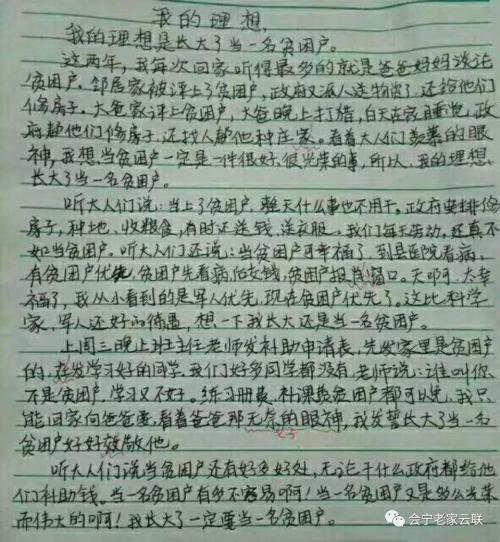 我的理想
我的理想是长大了当一名贫困户。
这两年,我每次回家听得最多的就是爸爸妈妈谈论
贫困户。邻居家被评上了贫困户,政府又派人送物资,还给他们
修房子。大爸家评上贫困户,大爸晚上打牌,白天在家睡觉,政
府帮他们修房子,还找人帮他种庄家。看着大人们羡慕的眼
神,我想当贫困户一定是一件很好,很光荣的事,所以,我的理想,
长大了当一名贫困户。
听大人们说:当上了贫困户,整天什么事也不用干。政府安排修
房子,种地、收粮食,有时还送钱,送衣服。我们每天劳动,还真不
如当贫困户。听大人们还说:当贫困户可幸福了,到县医院看病,
有贫困户优先,贫困户先看病,后交钱,贫困户报肖窗口。天啊,太幸
福了,我从小看到的是军人优先,现在贫困户优先了。这比科学
家,军人还好的待遇,想一下我长大还是当一名贫困户。
上周三晚上班主任老师发补助申请表,先发家里是贫困户
的,在发学习好的同学,我们好多同学都没有,老师说:谁叫你
不是贫困户,学习又不好。练习册费、补课费贫困户都可以免,我只
能回家向爸爸要,看着爸爸那无奈的眼神,我发誓长大了当一名
贫困户好好效敬他。
听大人们说当贫困户还有好多好处,无论干什么政府都给他
们补助钱。当一名贫困户有多不容易啊!当一名贫困户又是多么光荣
而伟大的啊!我长大了一定要当一名贫困户。
会宁老家云联